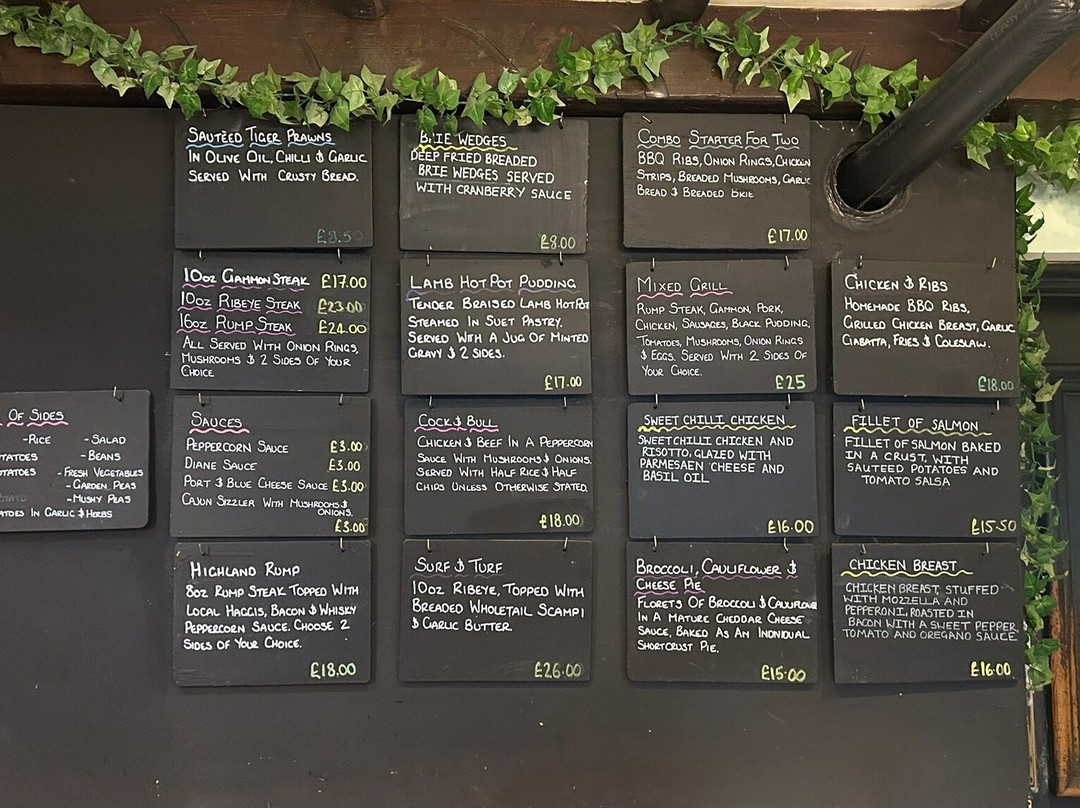 SAUTÉED TIGER PRAWNS
IN OLIVE OIL, CHILLI & GARLIC
SERVED WITH CRUSTY BREAD.
£8.50
BRIE WEDGES
DEEP FRIED BREADED
BRIE WEDGES SERVED
WITH CRANBERRY SAUCE
£8.00
COMBO STARTER FOR TWO
BBQ RIBS, ONION RINGS, CHICKEN
STRIPS, BREADED MUSHROOMS, GARLIC
BREAD & BREADED BRIE
£17.00
10oz GAMMON STEAK £17.00
10oz RIBEYE STEAK £23.00
16oz RUMP STEAK £24.00
ALL SERVED WITH ONION RINGS,
MUSHROOMS & 2 SIDES OF YOUR
CHOICE
LAMB HOT POT PUDDING
TENDER BRAISED LAMB HOTPOT
STEAMED IN SUET PASTRY.
SERVED WITH A JUG OF MINTED
GRAVY & 2 SIDES.
£17.00
MIXED GRILL
RUMP STEAK, GAMMON, PORK,
CHICKEN, SAUSAGES, BLACK PUDDING,
TOMATOES, MUSHROOMS, ONION RINGS
& EGGS. SERVED WITH 2 SIDES OF
YOUR CHOICE.
£25
CHICKEN & RIBS
HOMEMADE BBQ RIBS,
GRILLED CHICKEN BREAST, GARLIC
CIABATTA, FRIES & COLESLAW.
£18.00
OF SIDES
-RICE -SALAD
-BEANS
-FRESH VEGETABLES
-GARDEN PEAS
-MUSHY PEAS
IN GARLIC & HERBS
SAUCES
PEPPERCORN SAUCE £3.00
DIANE SAUCE £3.00
PORT & BLUE CHEESE SAUCE £3.00
CAJUN SIZZLER WITH MUSHROOMS &
ONIONS.
£3.00
COCK & BULL
CHICKEN & BEEF IN A PEPPERCORN
SAUCE WITH MUSHROOMS & ONIONS.
SERVED WITH HALF RICE & HALF
CHIPS UNLESS OTHERWISE STATED.
£18.00
SWEET CHILLI CHICKEN
SWEET CHILLI CHICKEN AND
RISOTTO, GLAZED WITH
PARMESAEN CHEESE AND
BASIL OIL
£16.00
FILLET OF SALMON
FILLET OF SALMON BAKED
IN A CRUST, WITH
SAUTEED POTATOES AND
TOMATO SALSA
£15.50
HIGHLAND RUMP
8oz RUMP STEAK TOPPED WITH
LOCAL HAGGIS, BACON & WHISKY
PEPPERCORN SAUCE. CHOOSE 2
SIDES OF YOUR CHOICE.
£18.00
SURF & TURF
10oz RIBEYE, TOPPED WITH
BREADED WHOLETAIL SCAMPI
& GARLIC BUTTER.
£26.00
BROCCOLI, CAULIFLOWER &
CHEESE PIE
FLORETS OF BROCCOLI & CAULIFLOWER
IN A MATURE CHEDDAR CHEESE
SAUCE, BAKED AS AN INDIVIDUAL
SHORTCRUST PIE.
£15.00
CHICKEN BREAST
CHICKEN BREAST, STUFFED
WITH MOZZELLA AND
PEPPERONI, ROASTED IN
BACON WITH A SWEET PEPPER,
TOMATO AND OREGANO SAUCE
£16.00